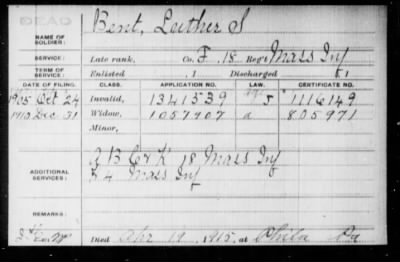 DEAD
NAME OF SOLDIER: Bent, Luther S
SERVICE: Late rank, Co. F, 18 Reg't Mass Inf
TERM OF SERVICE: Enlisted , 1 Discharged , 1
DATE OF FILING. CLASS. APPLICATION NO. LAW. CERTIFICATE NO.
1905 Oct 24 Invalid, 1341539 1116149
Dec 31 Widow, 1057907 805971
Minor,
ADDITIONAL SERVICES: B 18 Mass Inf
4 Mass Inf
REMARKS:
Died Apr 19, 1915, at Phila Pa